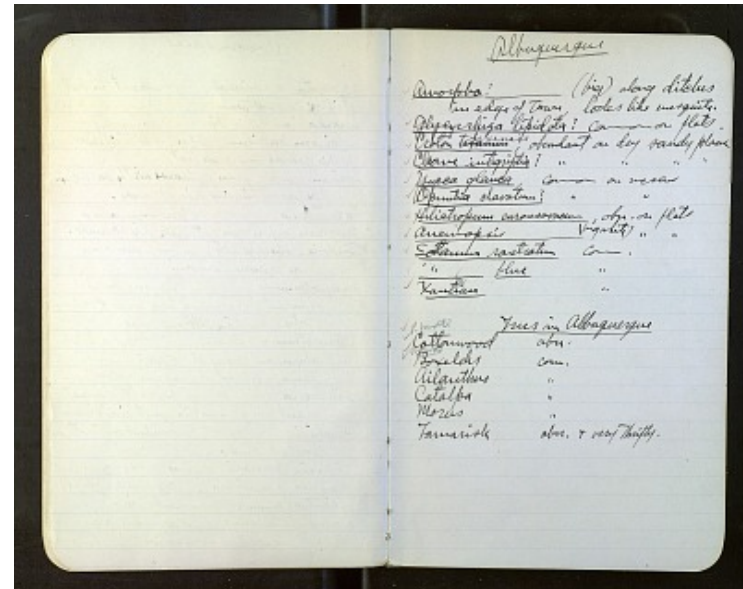 Albuquerque
Amorpha? (big) along ditches
in edge of town, looks like mesquite.
Glycyrrhiza lepidota? common on flats.
Croton texensis?, abundant on dry sandy places
Cleome integrifolia? " " " "
Yucca glauca, common on mesas
Opuntia clavatum? " "
Heliotropum curassavicum, abn. on flats
Anemopsis " "
Solanum rostratum com.
" " blue "
Xanthium "
Trees in Albuquerque
Cottonwood abn.
Boxelders com.
Ailanthus "
Catalpa "
Morus "
Tamarisk abn. & very thrifty.